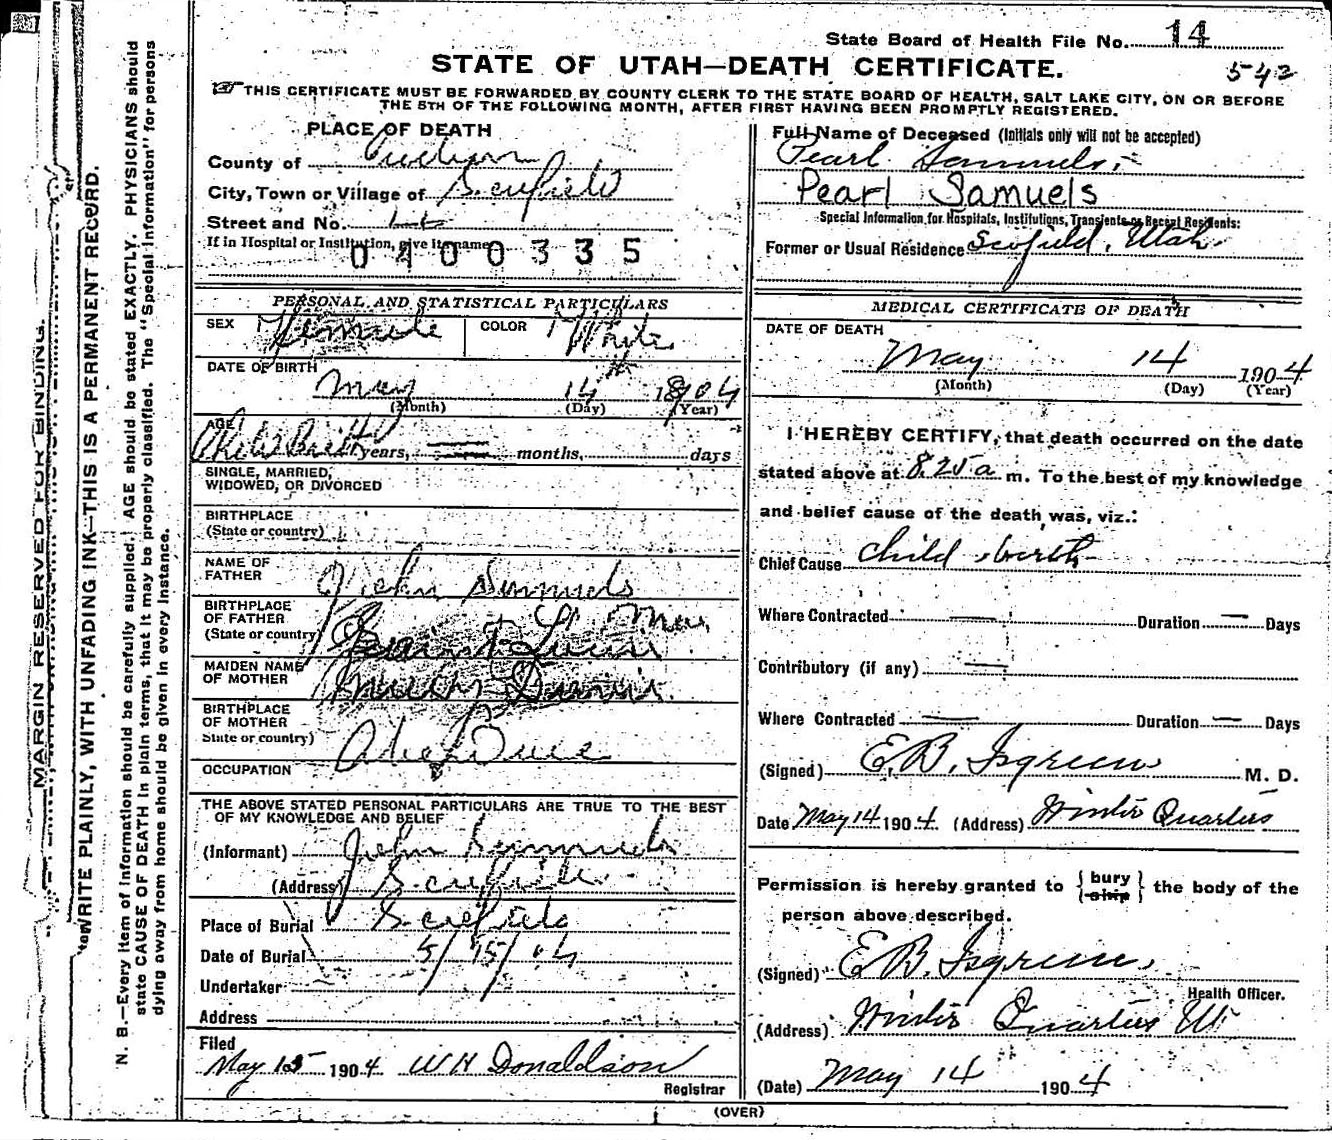 State Board of Health File No. 14
STATE OF UTAH—DEATH CERTIFICATE.
542
THIS CERTIFICATE MUST BE FORWARDED BY COUNTY CLERK TO THE STATE BOARD OF HEALTH, SALT LAKE CITY, ON OR BEFORE
THE 5TH OF THE FOLLOWING MONTH, AFTER FIRST HAVING BEEN PROMPTLY REGISTERED.
MARGIN RESERVED FOR BINDING.
WRITE PLAINLY, WITH UNFADING INK—THIS IS A PERMANENT RECORD.
N. B.—Every item of information should be carefully supplied. AGE should be stated EXACTLY. PHYSICIANS should
state CAUSE OF DEATH in plain terms, that it may be properly classified. The "Special Information" for persons
dying away from home should be given in every instance.
PLACE OF DEATH
County of
City, Town or Village of Scofield
Street and No.
If in Hospital or Institution, give its name
0400335
PERSONAL AND STATISTICAL PARTICULARS
SEX Female COLOR White
DATE OF BIRTH
May 14 1904
(Month) (Day) (Year)
AGE
years, months, days
SINGLE, MARRIED,
WIDOWED, OR DIVORCED
BIRTHPLACE
(State or country)
NAME OF
FATHER John Samuels
BIRTHPLACE
OF FATHER
(State or country)
MAIDEN NAME
OF MOTHER
BIRTHPLACE
OF MOTHER
State or country)
OCCUPATION
THE ABOVE STATED PERSONAL PARTICULARS ARE TRUE TO THE BEST
OF MY KNOWLEDGE AND BELIEF
(Informant) John Samuels
(Address) Scofield
Place of Burial Scofield
Date of Burial 5/15/04
Undertaker
Address
Filed
May 15 1904 W H Donaldson
Registrar
Full Name of Deceased (Initials only will not be accepted)
Pearl Samuels
Pearl Samuels
Special Information for Hospitals, Institutions, Transients or Recent Residents:
Former or Usual Residence Scofield, Utah
MEDICAL CERTIFICATE OF DEATH
DATE OF DEATH
May 14 1904
(Month) (Day) (Year)
I HEREBY CERTIFY, that death occurred on the date
stated above at 8.25 a m. To the best of my knowledge
and belief cause of the death was, viz.:
Chief Cause child birth
Where Contracted — Duration — Days
Contributory (if any) —
Where Contracted — Duration — Days
(Signed) E.B. Isgreen M. D.
Date May 14 1904 (Address) Winter Quarters
Permission is hereby granted to { bury ship } the body of the
person above described.
(Signed) E B. Isgreen
Health Officer.
(Address) Winter Quarters Ut
(Date) May 14 1904
(OVER)